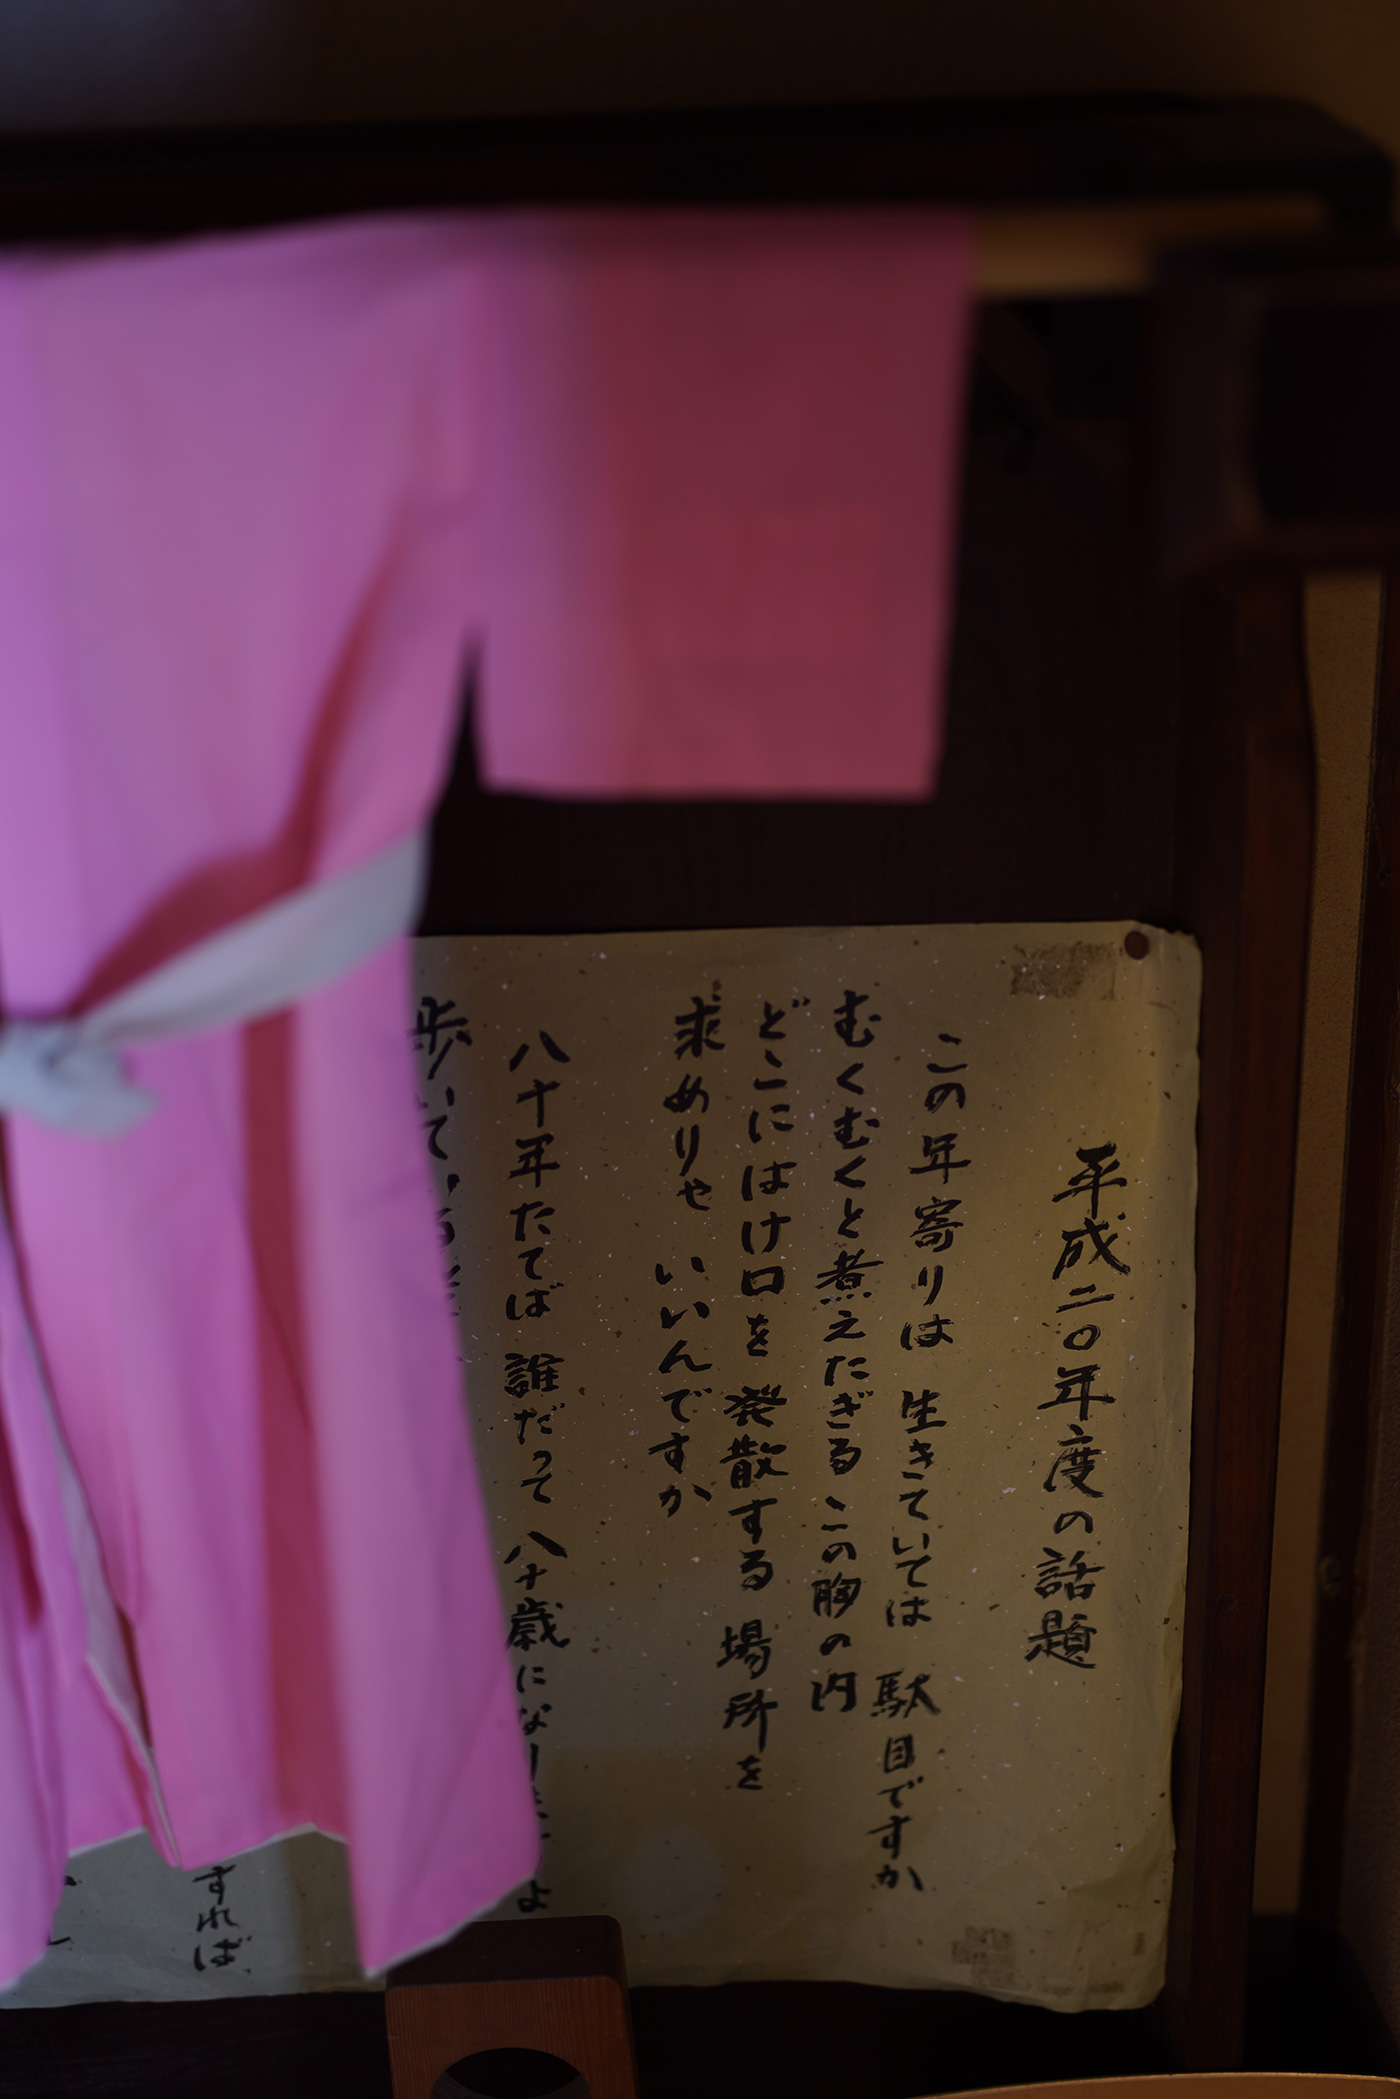 平成二〇年度の話題
この年寄りは 生きていては 駄目ですか
むくむくと煮えたぎる この胸の内
どこにはけ口を 発散する 場所を
求めりゃ いいんですか
八十年たてば 誰だって 八十歳になり
歩いている
すれば、